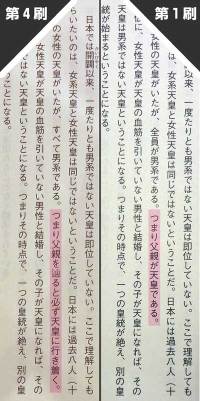 第1刷
以来、一度たりとも男系ではない天皇は即位していない。ここで理解しても
は、女系天皇と女性天皇は同じではないということだ。日本には過去八人（十
の女性の天皇がいたが、全員が男系である。つまり父親が天皇である。
女性天皇が天皇の血筋を引いていない男性と結婚し、その子が天皇になれば、その
天皇は男系ではない天皇ということになる。つまりその時点で、一つの皇統が絶え、別の皇
統が始まるということになる。
第4刷
日本では開闢以来、一度たりとも男系ではない天皇は即位していない。ここで理解しても
らいたいのは、女系天皇と女性天皇は同じではないということだ。日本には過去八人（十
の女性の天皇がいたが、すべて男系である。つまり父親を辿ると必ず天皇に行き着く。
女性天皇が天皇の血筋を引いていない男性と結婚し、その子が天皇になれば、その
ではない天皇ということになる。つまりその時点で、一つの皇統が絶え、別の皇
になる。